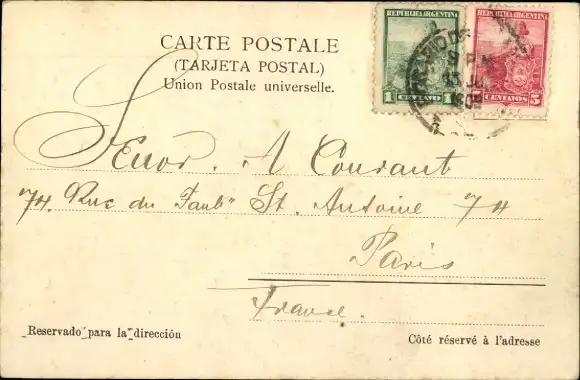 CARTE POSTALE
(TARJETA POSTAL)
Union Postale universelle.
REPUBLICA ARGENTINA
1 CENTAVO 1
REPUBLICA ARGENTINA
5 CENTAVOS 5
9 P.M
15
Señor. A Courant
74. Rue du Faub" St. Antoine 74
Paris
France.
Reservado para la dirección
Côté réservé à l'adresse